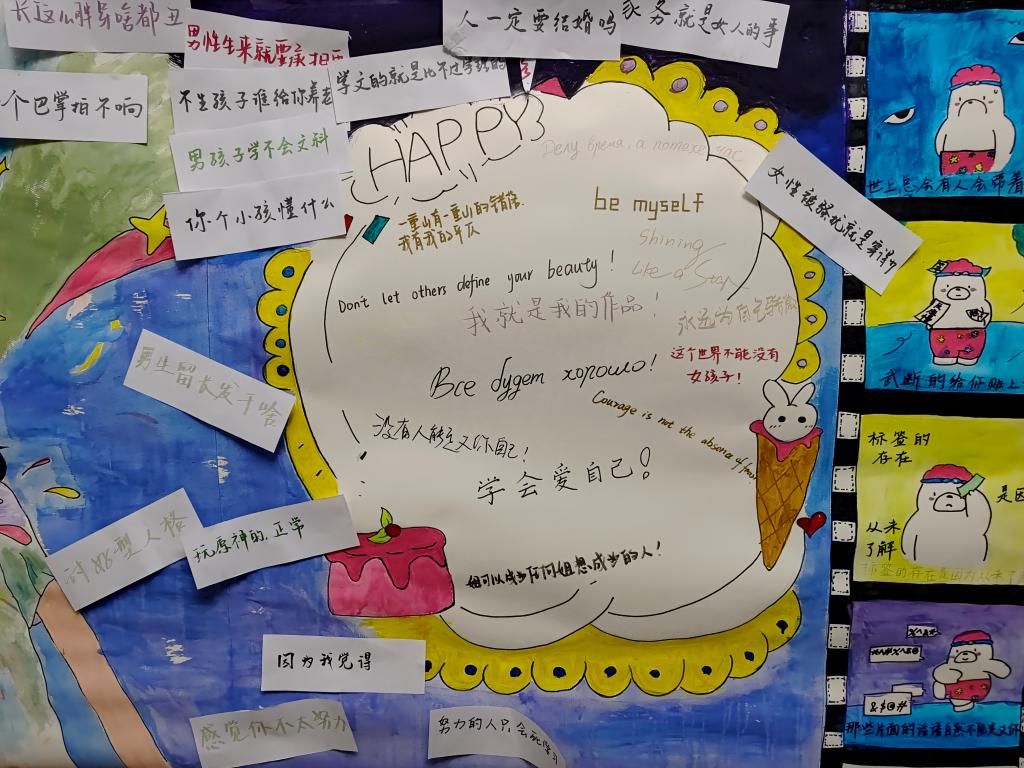 长这么胖穿啥都丑
男性生来就要承担
人一定要结婚吗
家务就是女人的事
一个巴掌拍不响
不生孩子谁给你养老
学文的就是比不过学理的
男孩子学不会文科
你个小孩懂什么
女性被骚扰就是穿得
男生留长发干啥
讨好型人格
玩原神的 正常
因为我觉得
感觉你不太努力
努力的人只会死学习
HAPPY
Делу время, а потехе час
一重山有一重山的错落
我有我的平仄
be myself
Shining
Like a Star
Don't let others define your beauty!
我就是我的作品!
永远为自己骄傲
Все будет хорошо!
这个世界不能没有
女孩子!
Courage is not the absence of
没有人能定义你自己!
学会爱自己!
姐可以成为任何姐想成为的人!
世上总会有人会带着
武断的给你贴上
标签的
存在
是因
从未
了解
标签的存在是因为从未了
&$@#
那些片面的话语自然不能定义你